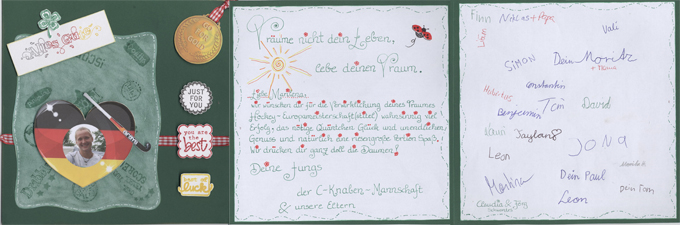 Alles Gute
JUST
FOR
YOU
you are
the
best.
best of
luck
Träume nicht dein Leben,
lebe deinen Traum.
Liebe
wir wünschen dir für die Verwirklichung deines Traumes
Hockey-Europameisterschaft(stitel) wahnsinnig viel
Erfolg, das nötige Quäntchen Glück und unendlichen
Genuss und natürlich eine riesengroße Portion Spaß.
Wir drücken dir ganz doll die Daumen!
Deine Jungs
der C-Knaben-Mannschaft
& unsere Eltern
Finn
Niklas + Papa
Vali
Simon
Dein Moritz
+ Mama
Constantin
Hubertus
Benjamin
Tim
David
Jaylan
JONA
Leon
Dein Paul
Dein Tom
Claudia & Jörg
Leon